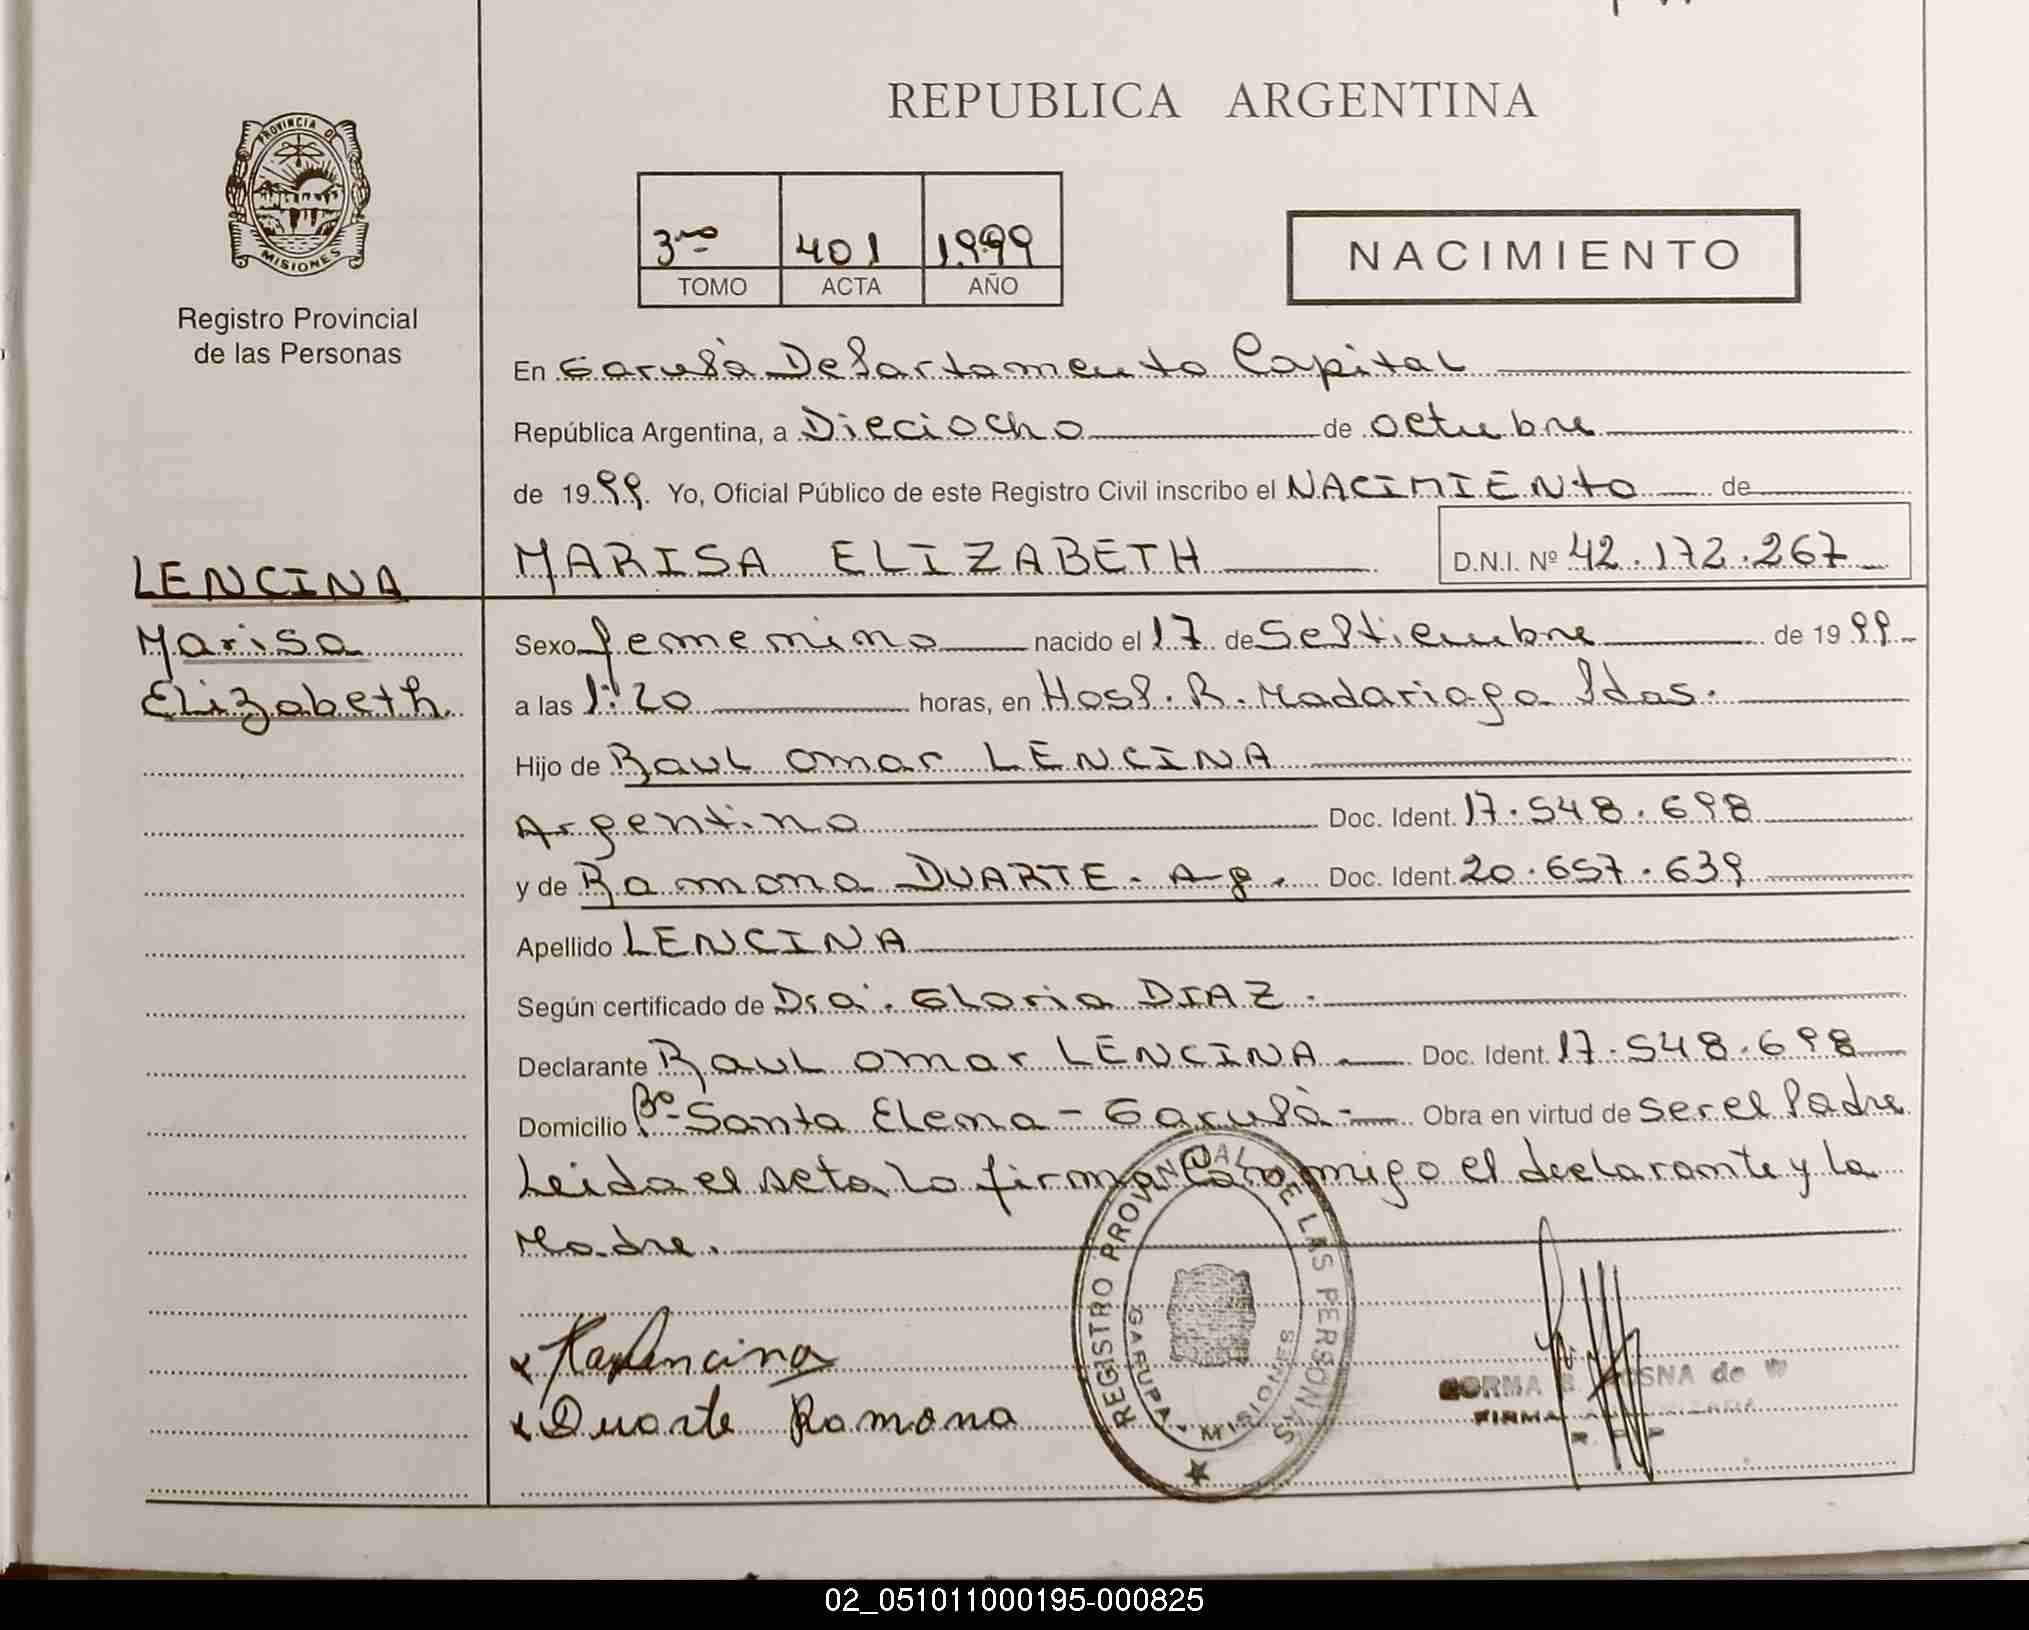 REPUBLICA ARGENTINA
PROVINCIA DE
MISIONES
Registro Provincial
de las Personas
3ro 401 1999
TOMO ACTA AÑO
NACIMIENTO
En Garupá Departamento Capital
República Argentina, a Dieciocho de octubre
de 1999. Yo, Oficial Público de este Registro Civil inscribo el NACIMIENTO de
MARISA ELIZABETH D.N.I. Nº 42.172.267
LENCINA
Marisa
Elizabeth
Sexo femenino nacido el 17 de Septiembre de 1999
a las 1:20 horas, en Hosp. R. Madariaga Pdas.
Hijo de Raul Omar LENCINA
Argentino Doc. Ident. 17.548.698
y de Ramona DUARTE - Arg. Doc. Ident. 20.657.639
Apellido LENCINA
Según certificado de Dra. Gloria DIAZ.-
Declarante Raul Omar LENCINA Doc. Ident. 17.548.698
Domicilio Bº Santa Elena - Garupá - Obra en virtud de ser el Padre
Leida el acta la firma conmigo el declarante y la
Madre.
x Lencina
x Duarte Ramona
REGISTRO PROVINCIAL DE LAS PERSONAS
GARUPA - MISIONES
de
FIRMA
02_051011000195-000825